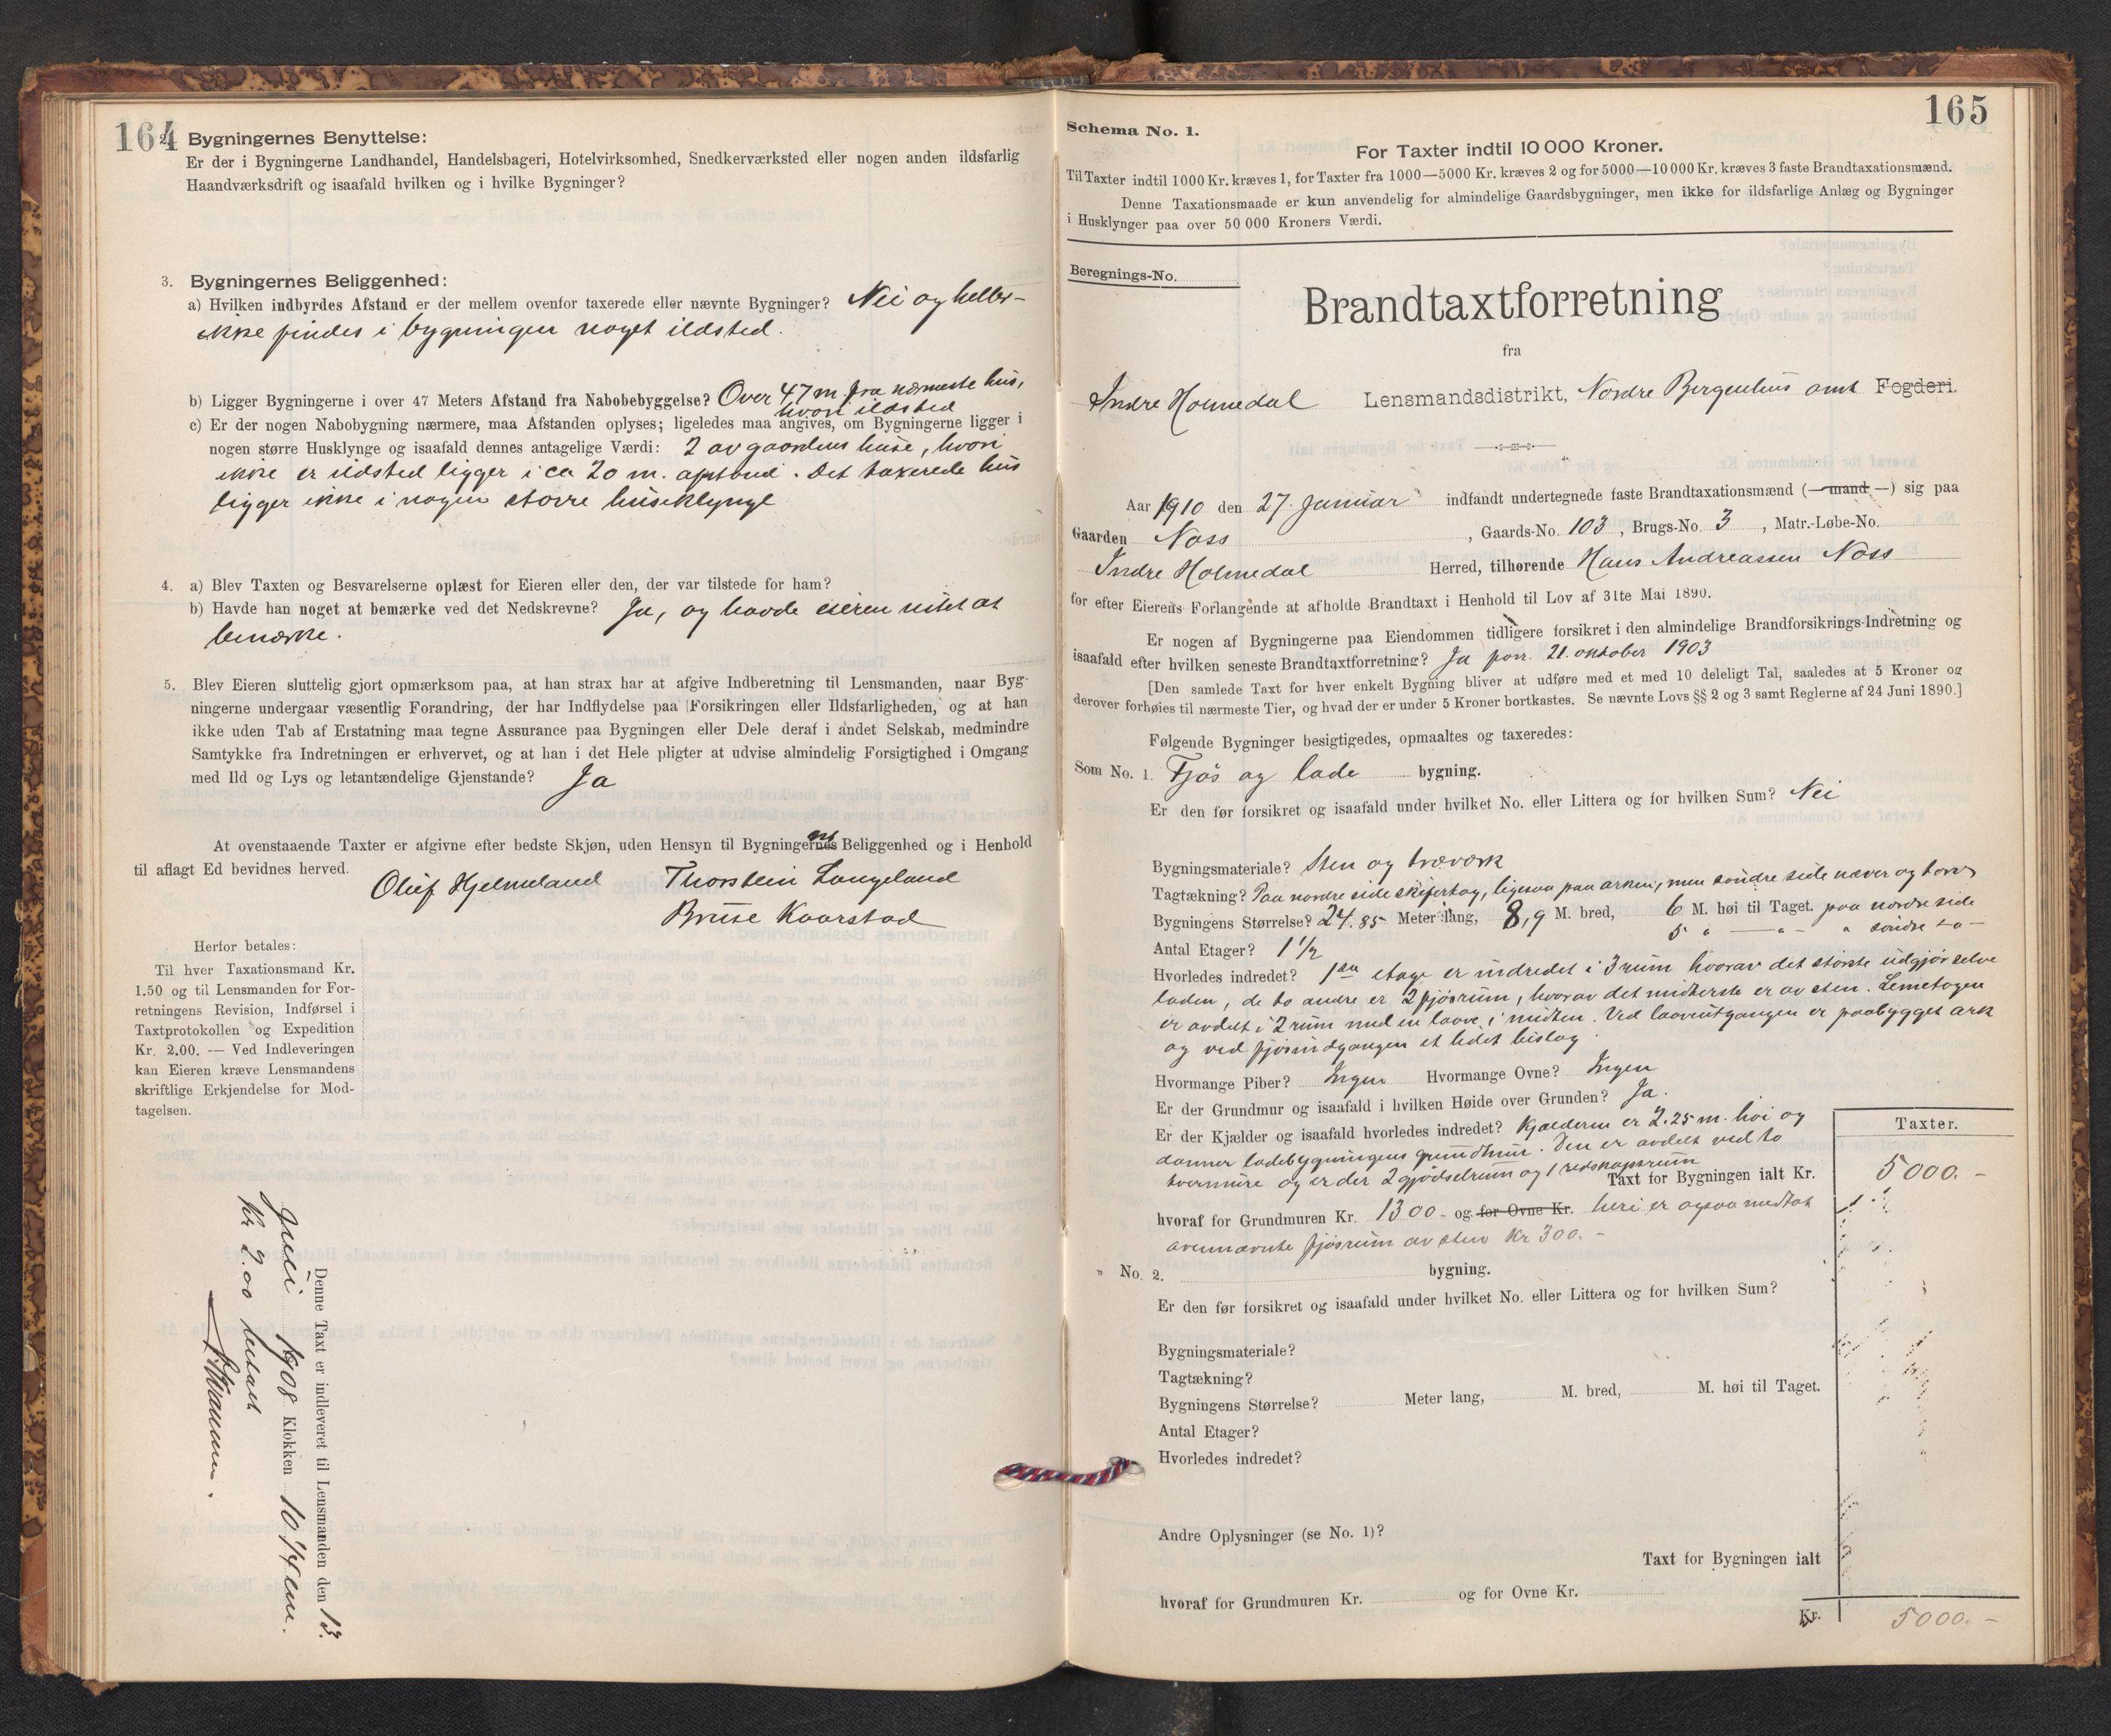 164
Bygningernes Benyttelse:
Er der i Bygningerne Landhandel, Handelsbageri, Hotelvirksomhed, Snedkerværksted eller nogen anden ildsfarlig
Haandværksdrift og isaafald hvilken og i hvilke Bygninger?
3. Bygningernes Beliggenhed:
a) Hvilken indbyrdes Afstand er der mellem ovenfor taxerede eller nævnte Bygninger? Nei og heller
ikke findes i bygningen noget ildsted.
b) Ligger Bygningerne i over 47 Meters Afstand fra Nabobebyggelse? Over 47 m. fra nærmeste hus,
hvori ildsted
c) Er der nogen Nabobygning nærmere, maa Afstanden oplyses; ligeledes maa angives, om Bygningerne ligger i
nogen større Husklynge og isaafald dennes antagelige Værdi: 2 av gaardens huse, hvori
ikke er ildsted ligger i ca 20 m. afstand. Det taxerede hus
ligger ikke i nogen større huseklynge
4. a) Blev Taxten og Besvarelserne oplæst for Eieren eller den, der var tilstede for ham?
b) Havde han noget at bemærke ved det Nedskrevne? Ja, og havde eieren intet at
bemærke.
5. Blev Eieren sluttelig gjort opmærksom paa, at han strax har at afgive Indberetning til Lensmanden, naar Byg-
ningerne undergaar væsentlig Forandring, der har Indflydelse paa Forsikringen eller Ildsfarligheden, og at han
ikke uden Tab af Erstatning maa tegne Assurance paa Bygningen eller Dele deraf i andet Selskab, medmindre
Samtykke fra Indretningen er erhvervet, og at han i det Hele pligter at udvise almindelig Forsigtighed i Omgang
med Ild og Lys og letantændelige Gjenstande? Ja
At ovenstaaende Taxter er afgivne efter bedste Skjøn, uden Hensyn til Bygningernes Beliggenhed og i Henhold
til aflagt Ed bevidnes herved.
Oluf Hjelmeland Thorstein Langeland
Bruse Kaarstad
Herfor betales:
Til hver Taxationsmand Kr.
1.50 og til Lensmanden for For-
retningens Revision, Indførsel i
Taxtprotokollen og Expedition
Kr. 2.00. — Ved Indleveringen
kan Eieren kræve Lensmandens
skriftlige Erkjendelse for Mod-
tagelsen.
Denne Taxt er indleveret til Lensmanden den 13.
Juli 1908 Klokken 10 1/4 em.
Kr 2.00 betalt
165
Schema No. 1.
For Taxter indtil 10 000 Kroner.
Til Taxter indtil 1000 Kr. kræves 1, for Taxter fra 1000—5000 Kr. kræves 2 og for 5000—10 000 Kr. kræves 3 faste Brandtaxationsmænd.
Denne Taxationsmaade er kun anvendelig for almindelige Gaardsbygninger, men ikke for ildsfarlige Anlæg og Bygninger
i Husklynger paa over 50 000 Kroners Værdi.
Beregnings-No.
Brandtaxtforretning
fra
Indre Holmedal Lensmandsdistrikt, Nordre Bergenhus amt Fogderi.
Aar 1910 den 27. Januar indfandt undertegnede faste Brandtaxationsmænd (— mand —) sig paa
Gaarden Noss , Gaards-No. 103 , Brugs-No. 3 , Matr.-Løbe-No.
Indre Holmedal Herred, tilhørende Hans Andreassen Noss
for efter Eierens Forlangende at afholde Brandtaxt i Henhold til Lov af 31te Mai 1890.
Er nogen af Bygningerne paa Eiendommen tidligere forsikret i den almindelige Brandforsikrings-Indretning og
isaafald efter hvilken seneste Brandtaxtforretning? Ja forr. 21. oktober 1903
[Den samlede Taxt for hver enkelt Bygning bliver at udføre med et med 10 deleligt Tal, saaledes at 5 Kroner og
derover forhøies til nærmeste Tier, og hvad der er under 5 Kroner bortkastes. Se nævnte Lovs §§ 2 og 3 samt Reglerne af 24 Juni 1890.]
Følgende Bygninger besigtigedes, opmaaltes og taxeredes:
Som No. 1. Fjøs og lade bygning.
Er den før forsikret og isaafald under hvilket No. eller Littera og for hvilken Sum? Nei
Bygningsmateriale? Sten og træværk
Tagtækning? Paa nordre side skifertag, ligesaa paa arken, men søndre side næver og torv
Bygningens Størrelse? 24.85 Meter lang, 8,9 M. bred, 6 M. høi til Taget. paa nordre side
5 " — " — " søndre —
Antal Etager? 1 1/2
Hvorledes indredet? 1ste etage er indredet i 3 rum hvorav det største udgjør selve
laden, de to andre er 2 fjøsrum, hvorav det midterste er av sten. Lemetagen
er avdelt i 2 rum med en laave i midten. Ved laaveutgangen er paabygget ark
og ved fjøsindgangen et lidet bislag
Hvormange Piber? Ingen Hvormange Ovne? Ingen
Er der Grundmur og isaafald i hvilken Høide over Grunden? Ja.
Er der Kjælder og isaafald hvorledes indredet? Kjælderen er 2.25 m. høi og
danner ladebygningens grundmur. Den er avdelt ved to
tvermure og er der 2 gjødselrum og 1 redskapsrum
Taxter.
Taxt for Bygningen ialt Kr. 5000.-
hvoraf for Grundmuren Kr. 1300- og for Ovne Kr. heri er ogsaa medtat
ovennævnte fjøsrum av sten Kr 300.-
" No. 2. bygning.
Er den før forsikret og isaafald under hvilket No. eller Littera og for hvilken Sum?
Bygningsmateriale?
Tagtækning?
Bygningens Størrelse? Meter lang, M. bred, M. høi til Taget.
Antal Etager?
Hvorledes indredet?
Andre Oplysninger (se No. 1)?
Taxt for Bygningen ialt
hvoraf for Grundmuren Kr. og for Ovne Kr.
Kr. 5000.-